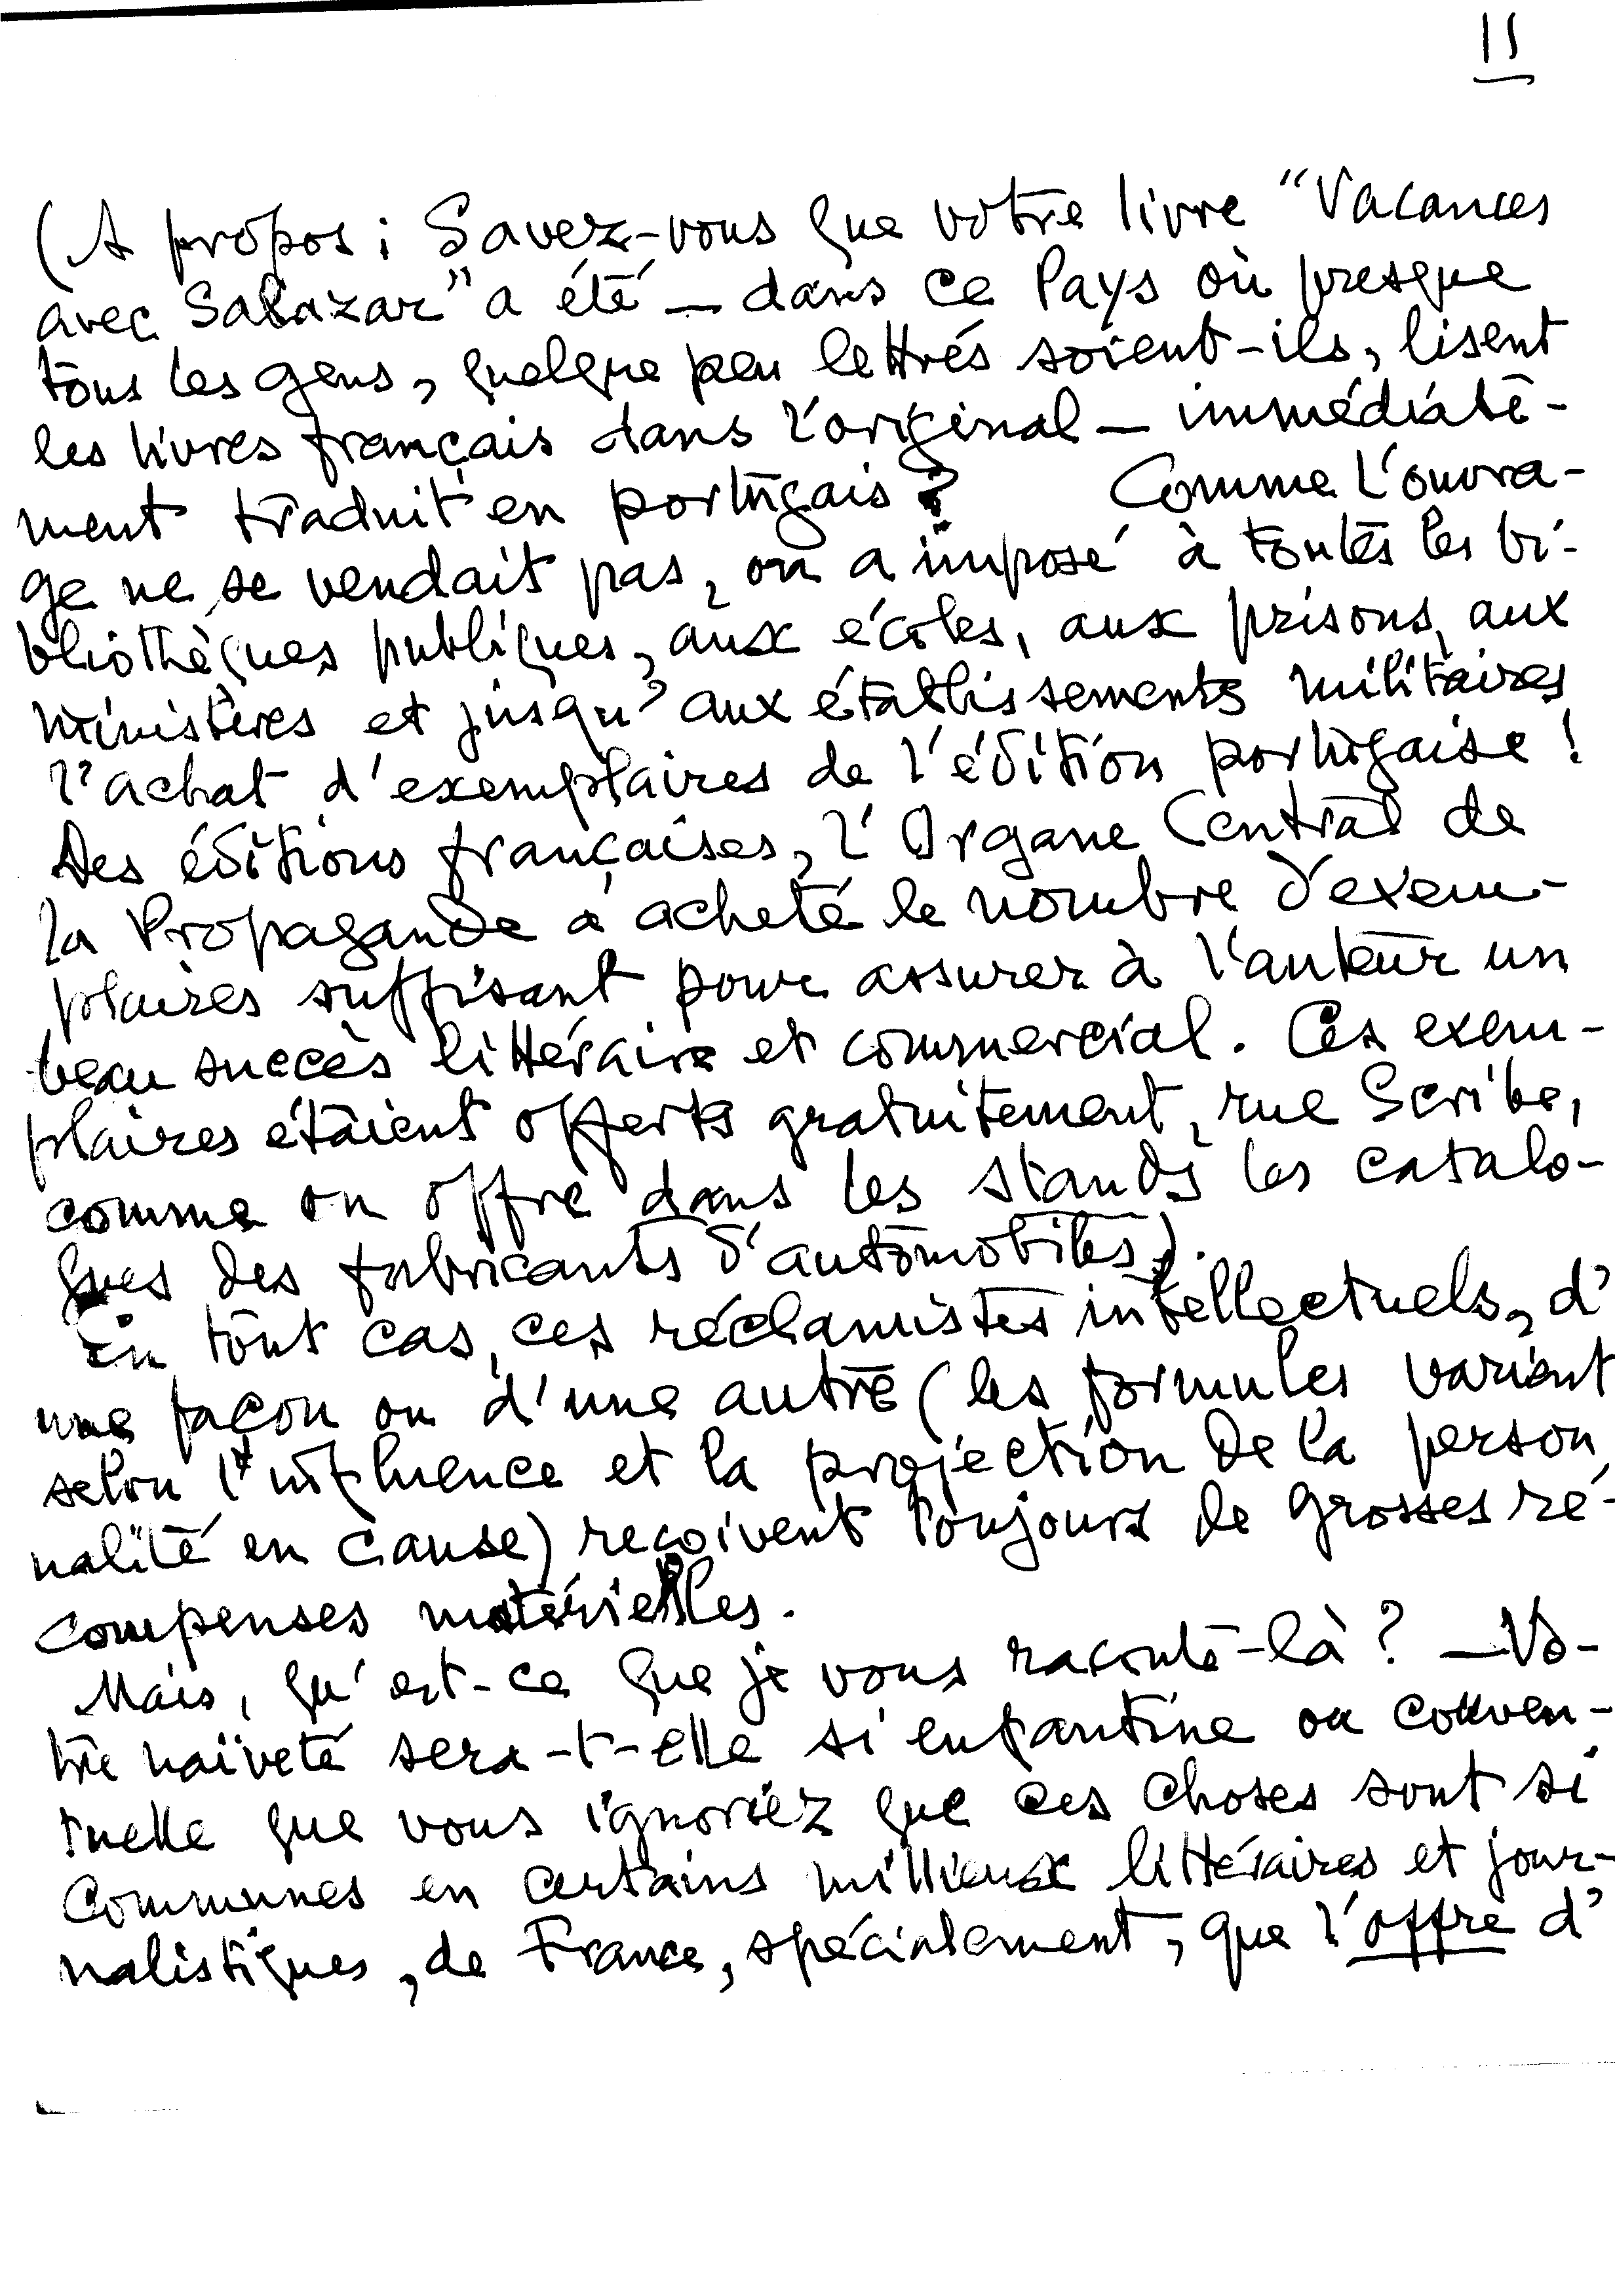 15
(A propos ; Savez-vous que votre livre "Vacances
avec Salazar" a été — dans ce Pays où presque
tous les gens, quelque peu lettrés soient-ils, lisent
les livres français dans l'original — immédiate-
ment traduit en portugais ? Comme l'ouvra-
ge ne se vendait pas, on a imposé à toutes les bi-
bliothèques publiques, aux écoles, aux prisons, aux
ministères et jusqu'aux établissements militaires
l'achat d'exemplaires de l'édition portugaise !
Des éditions françaises, l'Organe Central de
la Propagande a acheté le nombre d'exem-
plaires suffisant pour assurer à l'auteur un
beau succès littéraire et commercial. Ces exem-
plaires étaient offerts gratuitement, rue Scribe,
comme on offre dans les stands les catalo-
gues des fabricants d'automobiles).
En tout cas, ces réclamistes intellectuels, d'
une façon ou d'une autre (les formules varient
selon l'influence et la projection de la person
nalité en cause) reçoivent toujours de grosses ré-
compenses matérielles.
Mais, qu'est-ce que je vous raconte-là ? — Vo-
tre naïveté sera-t-elle si enfantine ou conven-
tuelle que vous ignoriez que ces choses sont si
communes en certains millieux littéraires et jour-
nalistiques, de France, spécialement, que l'offre d'